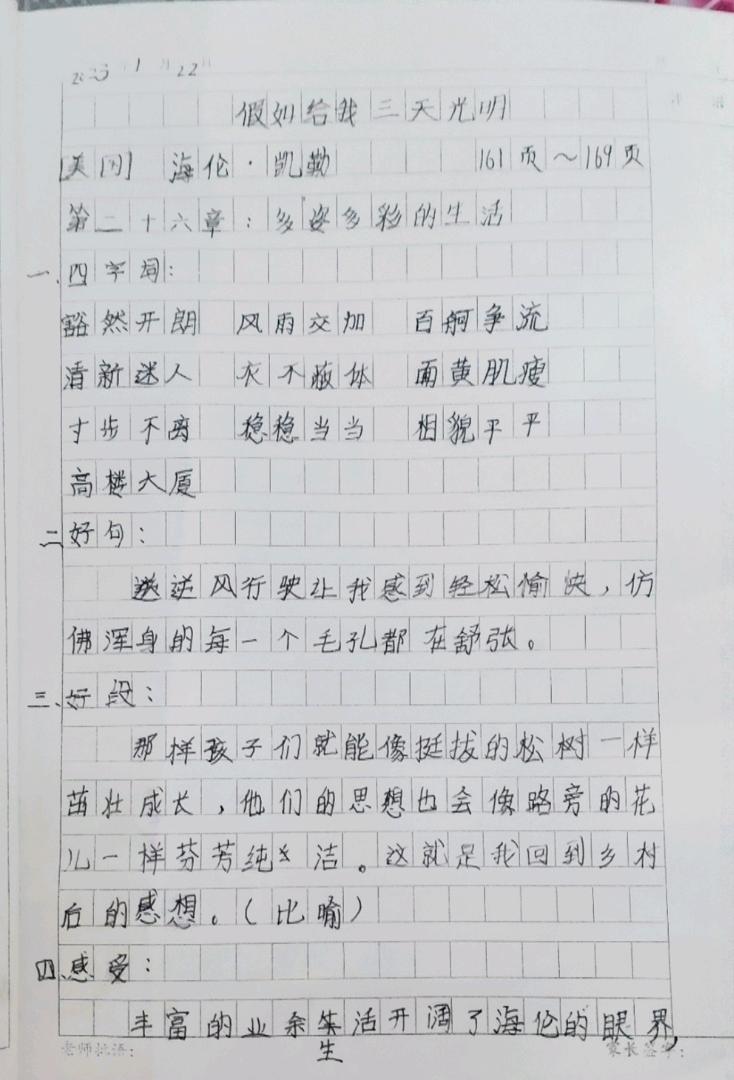 2023年1月22日
假如给我三天光明
[美国] 海伦·凯勒 161页～169页
第二十六章：多姿多彩的生活
一、四字词：
豁然开朗 风雨交加 百舸争流
清新迷人 衣不蔽体 面黄肌瘦
寸步不离 稳稳当当 相貌平平
高楼大厦
二、好句：
逆风行驶让我感到轻松愉快，仿
佛浑身的每一个毛孔都在舒张。
三、好段：
那样孩子们就能像挺拔的松树一样
茁壮成长，他们的思想也会像路旁的花
儿一样芬芳纯洁。这就是我回到乡村
后的感想。（比喻）
四、感受：
丰富的业余生活开阔了海伦的眼界，
老师批语： 家长签字：